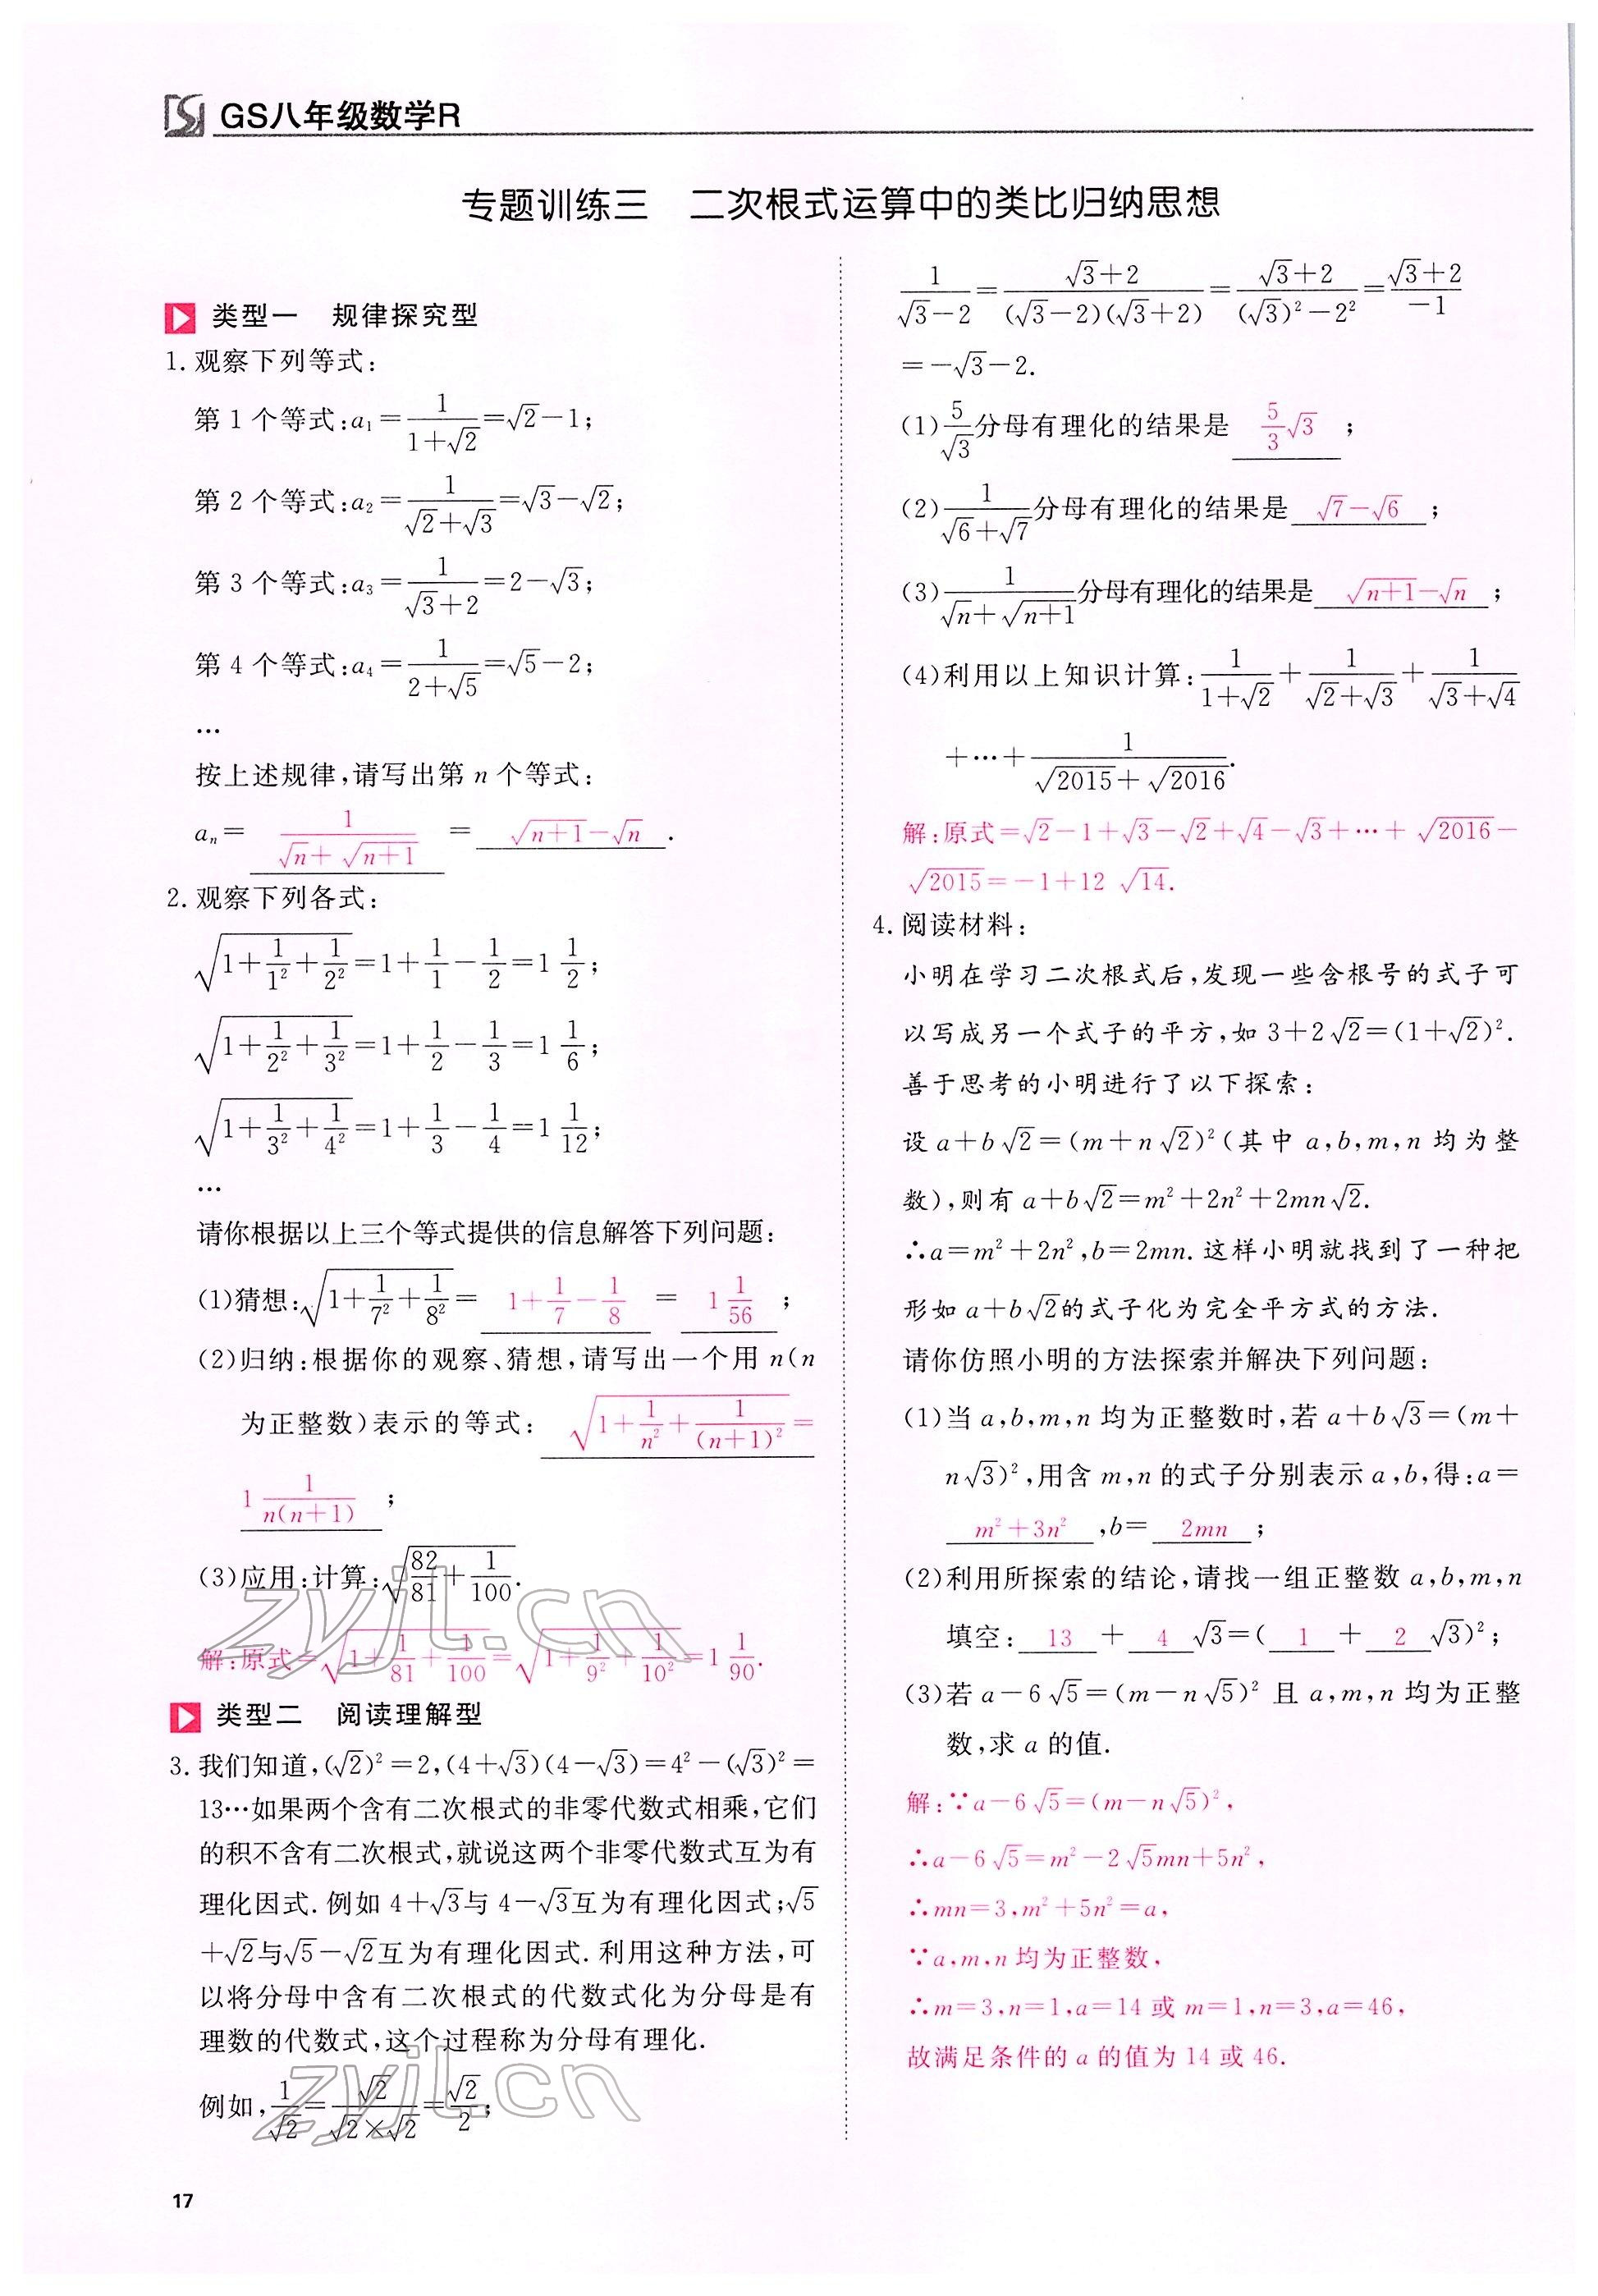 GS八年级数学R
专题训练三 二次根式运算中的类比归纳思想
类型一 规律探究型
1. 观察下列等式:
第 1 个等式:a₁=1/(1+√2)=√2-1;
第 2 个等式:a₂=1/(√2+√3)=√3-√2;
第 3 个等式:a₃=1/(√3+2)=2-√3;
第 4 个等式:a₄=1/(2+√5)=√5-2;
…
按上述规律,请写出第 n 个等式:
aₙ= 1/(√n+√(n+1)) = √(n+1)-√n .
2. 观察下列各式:
√(1+1/1²+1/2²)=1+1/1-1/2=1 1/2;
√(1+1/2²+1/3²)=1+1/2-1/3=1 1/6;
√(1+1/3²+1/4²)=1+1/3-1/4=1 1/12;
…
请你根据以上三个等式提供的信息解答下列问题:
(1)猜想:√(1+1/7²+1/8²)= 1+1/7-1/8 = 1 1/56 ;
(2)归纳:根据你的观察、猜想,请写出一个用 n(n
为正整数)表示的等式: √(1+1/n²+1/(n+1)²)=
1 1/(n(n+1)) ;
(3)应用:计算:√(82/81+1/100).
解:原式=√(1+1/81+1/100)=√(1+1/9²+1/10²)=1 1/90.
类型二 阅读理解型
3. 我们知道,(√2)²=2,(4+√3)(4-√3)=4²-(√3)²=
13…如果两个含有二次根式的非零代数式相乘,它们
的积不含有二次根式,就说这两个非零代数式互为有
理化因式. 例如 4+√3与 4-√3互为有理化因式;√5
+√2与√5-√2互为有理化因式. 利用这种方法,可
以将分母中含有二次根式的代数式化为分母是有
理数的代数式,这个过程称为分母有理化.
例如,1/√2=√2/(√2×√2)=√2/2;
1/(√3-2)=(√3+2)/((√3-2)(√3+2))=(√3+2)/((√3)²-2²)=(√3+2)/-1
=-√3-2.
(1)5/√3分母有理化的结果是 5/3√3 ;
(2)1/(√6+√7)分母有理化的结果是 √7-√6 ;
(3)1/(√n+√(n+1))分母有理化的结果是 √(n+1)-√n ;
(4)利用以上知识计算:1/(1+√2)+1/(√2+√3)+1/(√3+√4)
+…+1/(√2015+√2016).
解:原式=√2-1+√3-√2+√4-√3+…+√2016-
√2015=-1+12√14.
4. 阅读材料:
小明在学习二次根式后,发现一些含根号的式子可
以写成另一个式子的平方,如 3+2√2=(1+√2)².
善于思考的小明进行了以下探索:
设 a+b√2=(m+n√2)²(其中 a,b,m,n 均为整
数),则有 a+b√2=m²+2n²+2mn√2.
∴a=m²+2n²,b=2mn. 这样小明就找到了一种把
形如 a+b√2的式子化为完全平方式的方法.
请你仿照小明的方法探索并解决下列问题:
(1)当 a,b,m,n 均为正整数时,若 a+b√3=(m+
n√3)²,用含 m,n 的式子分别表示 a,b,得:a=
m²+3n² ,b= 2mn ;
(2)利用所探索的结论,请找一组正整数 a,b,m,n
填空: 13 + 4 √3=( 1 + 2 √3)²;
(3)若 a-6√5=(m-n√5)² 且 a,m,n 均为正整
数,求 a 的值.
解:∵a-6√5=(m-n√5)²,
∴a-6√5=m²-2√5mn+5n²,
∴mn=3,m²+5n²=a,
∵a,m,n 均为正整数,
∴m=3,n=1,a=14 或 m=1,n=3,a=46,
故满足条件的 a 的值为 14 或 46.
zyjl.cn
zyjl.cn
17